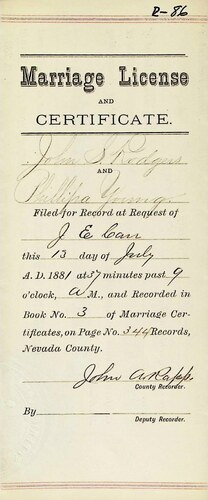 R-86
Marriage License
AND
CERTIFICATE.
John S. Rodgers
AND
Phillipa Young
Filed for Record at Request of
J E Carr
this 13 day of July
A. D. 1881 at 37 minutes past 9
o'clock, A M., and Recorded in
Book No. 3 of Marriage Cer-
tificates, on Page No. 344 Records,
Nevada County.
John A Rapp
County Recorder.
By
Deputy Recorder.